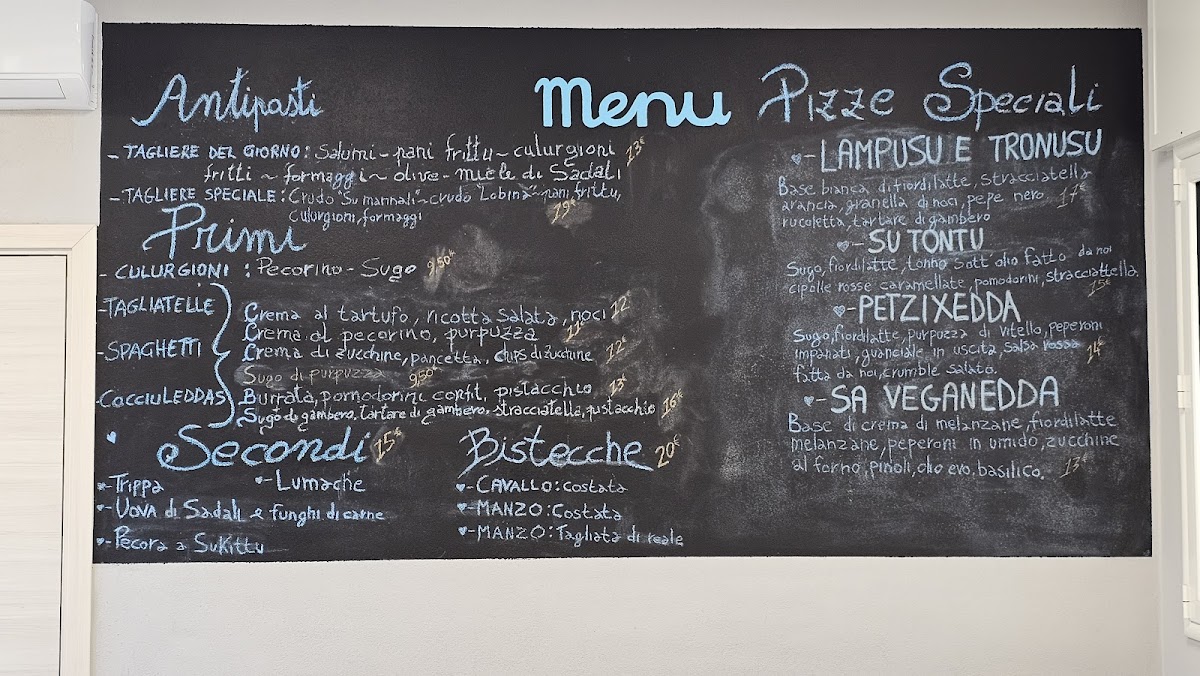 Menu
Antipasti
- TAGLIERE DEL GIORNO: Salumi - pani frittu - culurgioni 13€
fritti - formaggi - olive - miele di Sadali
- TAGLIERE SPECIALE: Crudo "Su mannali" - crudo "Lobina" - pani frittu,
culurgioni, formaggi 19€
Primi
- CULURGIONI: Pecorino - Sugo 9,50€
- TAGLIATELLE
- SPAGHETTI
- COCCIULEDDAS
Crema al tartufo, ricotta salata, noci 12€
Crema al pecorino, purpuzza 11€
Crema di zucchine, pancetta, chips di zucchine 12€
Sugo di purpuzza 9,50€
Burrata, pomodorini confit, pistacchio 13€
Sugo di gambero, tartare di gambero, stracciatella, pistacchio 16€
Secondi 15€
- Trippa
- Lumache
- UOVA di Sadali e funghi di carne
- Pecora a SuKittu
Bistecche 20€
- CAVALLO: costata
- MANZO: Costata
- MANZO: Tagliata di reale
Pizze Speciali
- LAMPUSU E TRONUSU
Base bianca, di fiordilatte, stracciatella
arancia, granella di noci, pepe nero 17€
rucoletta, tartare di gambero
- SU TONTU
Sugo, fiordilatte, tonno sott'olio fatto da noi
cipolle rosse caramellate, pomodorini, stracciattella. 15€
- PETZIXEDDA
Sugo, fiordilatte, purpuzza di vitello, peperoni
impanati, guanciale in uscita, salsa rossa 14€
fatta da noi, crumble salato.
- SA VEGANEDDA
Base di crema di melanzane, fiordilatte
melanzane, peperoni in umido, zucchine
al forno, pinoli, olio evo, basilico. 13€